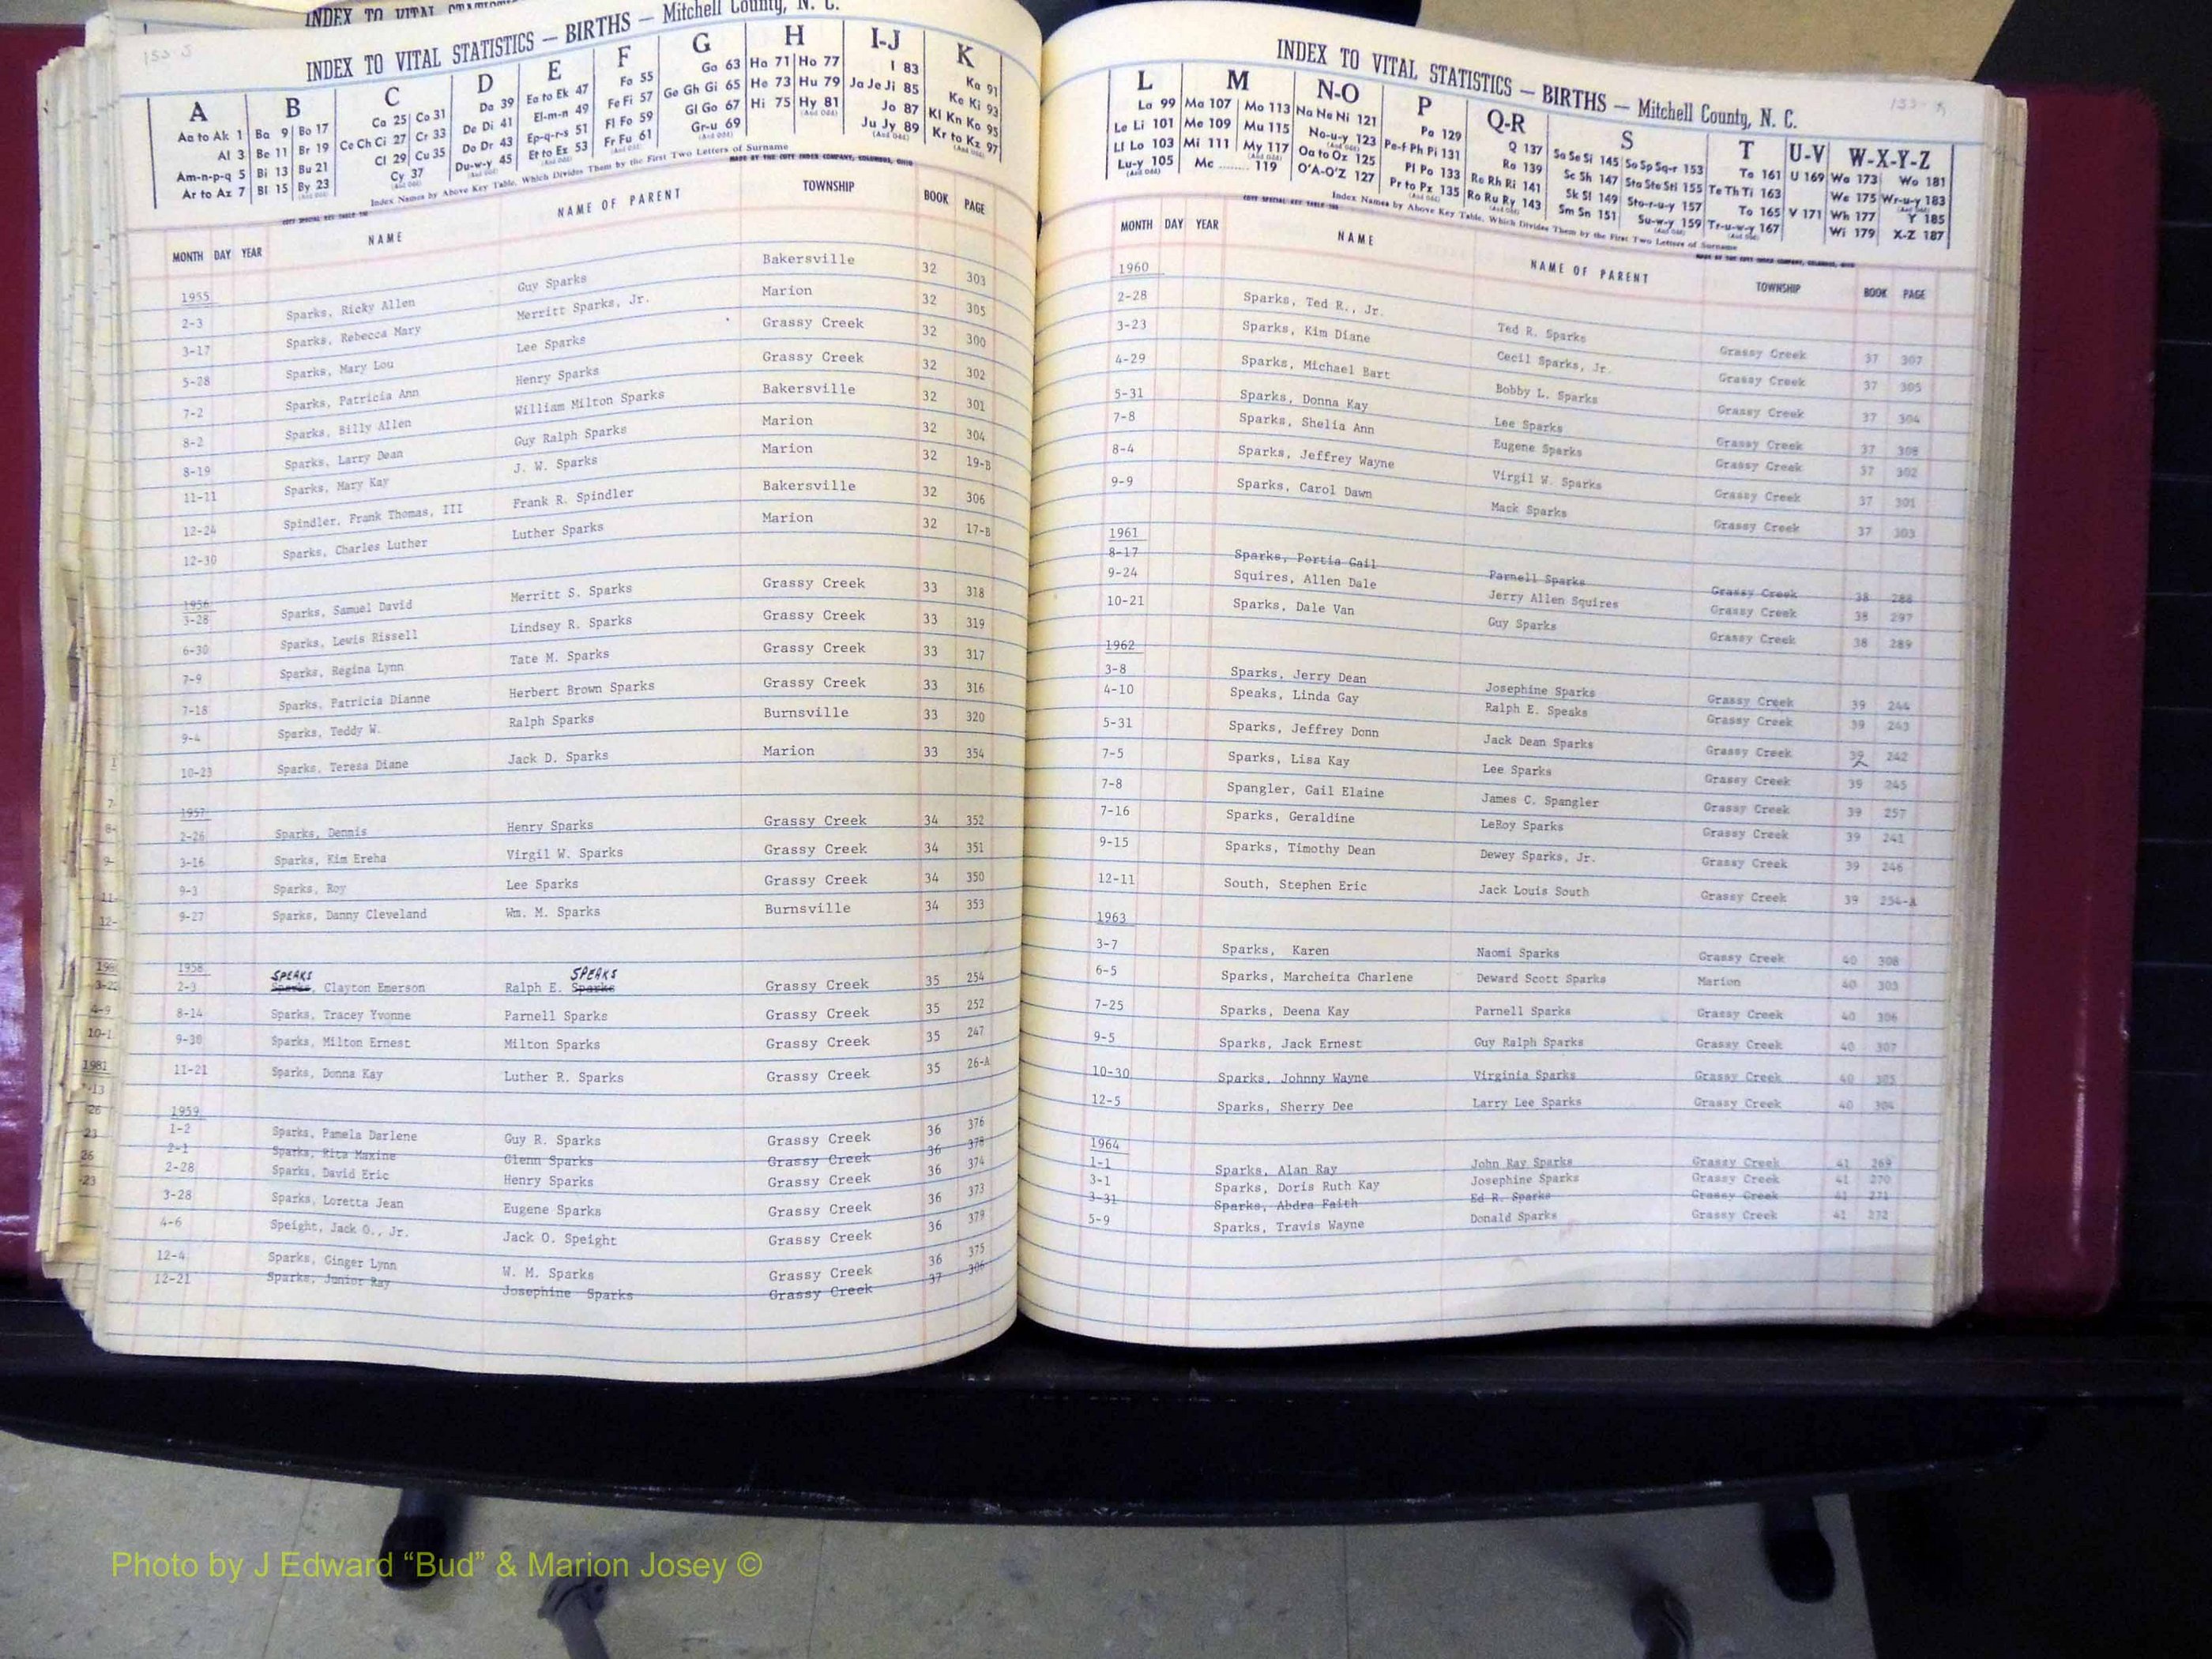 INDEX TO VITAL STATISTICS — BIRTHS — Mitchell County, N. C.
A B C D E F G H I-J K
Aa to Ak 1 | Ba 9 | Bo 17 | Ca 25 | Co 31 | Da 39 | Ea to Ek 47 | Fa 55 | Ga 63 | Ha 71 | Ho 77 | I 83 | Ka 91
Al 3 | Be 11 | Br 19 | Ce Ch Ci 27 | Cr 33 | De Di 41 | El-m-n 49 | Fe Fi 57 | Ge Gh Gi 65 | He 73 | Hu 79 | Ja Je Ji 85 | Ke Ki 93
Am-n-p-q 5 | Bi 13 | Bu 21 | Cl 29 | Cu 35 | Do Dr 43 | Ep-q-r-s 51 | Fl Fo 59 | Gl Go 67 | Hi 75 | Hy 81 | Jo 87 | Kl Kn Ko 95
Ar to Az 7 | Bl 15 | By 23 | Cy 37 | Du-w-y 45 | Et to Ez 53 | Fr Fu 61 | Gr-u 69 | Ju Jy 89 | Kr to Kz 97
Index Names by Above Key Table, Which Divides Them by the First Two Letters of Surname
MONTH DAY YEAR NAME NAME OF PARENT TOWNSHIP BOOK PAGE
1955
2-3 Sparks, Ricky Allen Guy Sparks Bakersville 32 303
3-17 Sparks, Rebecca Mary Merritt Sparks, Jr. Marion 32 305
5-28 Sparks, Mary Lou Lee Sparks Grassy Creek 32 300
7-2 Sparks, Patricia Ann Henry Sparks Grassy Creek 32 302
8-2 Sparks, Billy Allen William Milton Sparks Bakersville 32 301
8-19 Sparks, Larry Dean Guy Ralph Sparks Marion 32 304
11-11 Sparks, Mary Kay J. W. Sparks Marion 32 19-B
12-24 Spindler, Frank Thomas, III Frank R. Spindler Bakersville 32 306
12-30 Sparks, Charles Luther Luther Sparks Marion 32 17-B
1956
3-28 Sparks, Samuel David Merritt S. Sparks Grassy Creek 33 318
6-30 Sparks, Lewis Rissell Lindsey R. Sparks Grassy Creek 33 319
7-9 Sparks, Regina Lynn Tate M. Sparks Grassy Creek 33 317
7-18 Sparks, Patricia Dianne Herbert Brown Sparks Grassy Creek 33 316
9-4 Sparks, Teddy W. Ralph Sparks Burnsville 33 320
10-23 Sparks, Teresa Diane Jack D. Sparks Marion 33 354
1957
2-26 Sparks, Dennis Henry Sparks Grassy Creek 34 352
3-16 Sparks, Kim Ereha Virgil W. Sparks Grassy Creek 34 351
9-3 Sparks, Roy Lee Sparks Grassy Creek 34 350
9-27 Sparks, Danny Cleveland Wm. M. Sparks Burnsville 34 353
1958 SPEAKS SPEAKS
2-3 Sparks, Clayton Emerson Ralph E. Sparks Grassy Creek 35 254
8-14 Sparks, Tracey Yvonne Parnell Sparks Grassy Creek 35 252
9-30 Sparks, Milton Ernest Milton Sparks Grassy Creek 35 247
11-21 Sparks, Donna Kay Luther R. Sparks Grassy Creek 35 26-A
1959
1-2 Sparks, Pamela Darlene Guy R. Sparks Grassy Creek 36 376
2-1 Sparks, Rita Maxine Glenn Sparks Grassy Creek 36 378
2-28 Sparks, David Eric Henry Sparks Grassy Creek 36 374
3-28 Sparks, Loretta Jean Eugene Sparks Grassy Creek 36 373
4-6 Speight, Jack O., Jr. Jack O. Speight Grassy Creek 36 379
12-4 Sparks, Ginger Lynn W. M. Sparks Grassy Creek 36 375
12-21 Sparks, Junior Ray Josephine Sparks Grassy Creek 37 306
INDEX TO VITAL STATISTICS — BIRTHS — Mitchell County, N. C.
L M N-O P Q-R S T U-V W-X-Y-Z
La 99 | Ma 107 | Mo 113 | Na Ne Ni 121 | Pa 129 | Q 137 | Sa Se Si 145 | So Sp Sq-r 153 | Ta 161 | U 169 | Wa 173 | Wo 181
Le Li 101 | Me 109 | Mu 115 | No-u-y 123 | Pe-f Ph Pi 131 | Ra 139 | Sc Sh 147 | Sta Ste Sti 155 | Te Th Ti 163 | We 175 | Wr-u-y 183
Ll Lo 103 | Mi 111 | My 117 | Oa to Oz 125 | Pl Po 133 | Re Rh Ri 141 | Sk Sl 149 | Sto-r-u-y 157 | To 165 | V 171 | Wh 177 | Y 185
Lu-y 105 | Mc 119 | O'A-O'Z 127 | Pr to Pz 135 | Ro Ru Ry 143 | Sm Sn 151 | Su-w-y 159 | Tr-u-w-y 167 | Wi 179 | X-Z 187
Index Names by Above Key Table, Which Divides Them by the First Two Letters of Surname
MONTH DAY YEAR NAME NAME OF PARENT TOWNSHIP BOOK PAGE
1960
2-28 Sparks, Ted R., Jr. Ted R. Sparks Grassy Creek 37 307
3-23 Sparks, Kim Diane Cecil Sparks, Jr. Grassy Creek 37 305
4-29 Sparks, Michael Bart Bobby L. Sparks Grassy Creek 37 304
5-31 Sparks, Donna Kay Lee Sparks Grassy Creek 37 308
7-8 Sparks, Shelia Ann Eugene Sparks Grassy Creek 37 302
8-4 Sparks, Jeffrey Wayne Virgil W. Sparks Grassy Creek 37 301
9-9 Sparks, Carol Dawn Mack Sparks Grassy Creek 37 303
1961
8-17 Sparks, Portia Gail Parnell Sparks Grassy Creek 38 288
9-24 Squires, Allen Dale Jerry Allen Squires Grassy Creek 38 297
10-21 Sparks, Dale Van Guy Sparks Grassy Creek 38 289
1962
3-8 Sparks, Jerry Dean Josephine Sparks Grassy Creek 39 244
4-10 Speaks, Linda Gay Ralph E. Speaks Grassy Creek 39 243
5-31 Sparks, Jeffrey Donn Jack Dean Sparks Grassy Creek 39 242
7-5 Sparks, Lisa Kay Lee Sparks Grassy Creek 39 245
7-8 Spangler, Gail Elaine James C. Spangler Grassy Creek 39 257
7-16 Sparks, Geraldine LeRoy Sparks Grassy Creek 39 241
9-15 Sparks, Timothy Dean Dewey Sparks, Jr. Grassy Creek 39 246
12-11 South, Stephen Eric Jack Louis South Grassy Creek 39 254-A
1963
3-7 Sparks, Karen Naomi Sparks Grassy Creek 40 308
6-5 Sparks, Marcheita Charlene Deward Scott Sparks Marion 40 303
7-25 Sparks, Deena Kay Parnell Sparks Grassy Creek 40 306
9-5 Sparks, Jack Ernest Guy Ralph Sparks Grassy Creek 40 307
10-30 Sparks, Johnny Wayne Virginia Sparks Grassy Creek 40 305
12-5 Sparks, Sherry Dee Larry Lee Sparks Grassy Creek 40 304
1964
1-1 Sparks, Alan Ray John Ray Sparks Grassy Creek 41 269
3-1 Sparks, Doris Ruth Kay Josephine Sparks Grassy Creek 41 270
3-31 Sparks, Abdra Faith Ed R. Sparks Grassy Creek 41 271
5-9 Sparks, Travis Wayne Donald Sparks Grassy Creek 41 272
Photo by J Edward “Bud” & Marion Josey ©